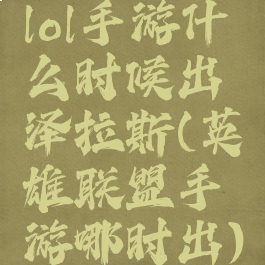 lol手游什
么时候出
泽拉斯(英
雄联盟手
游哪时出)